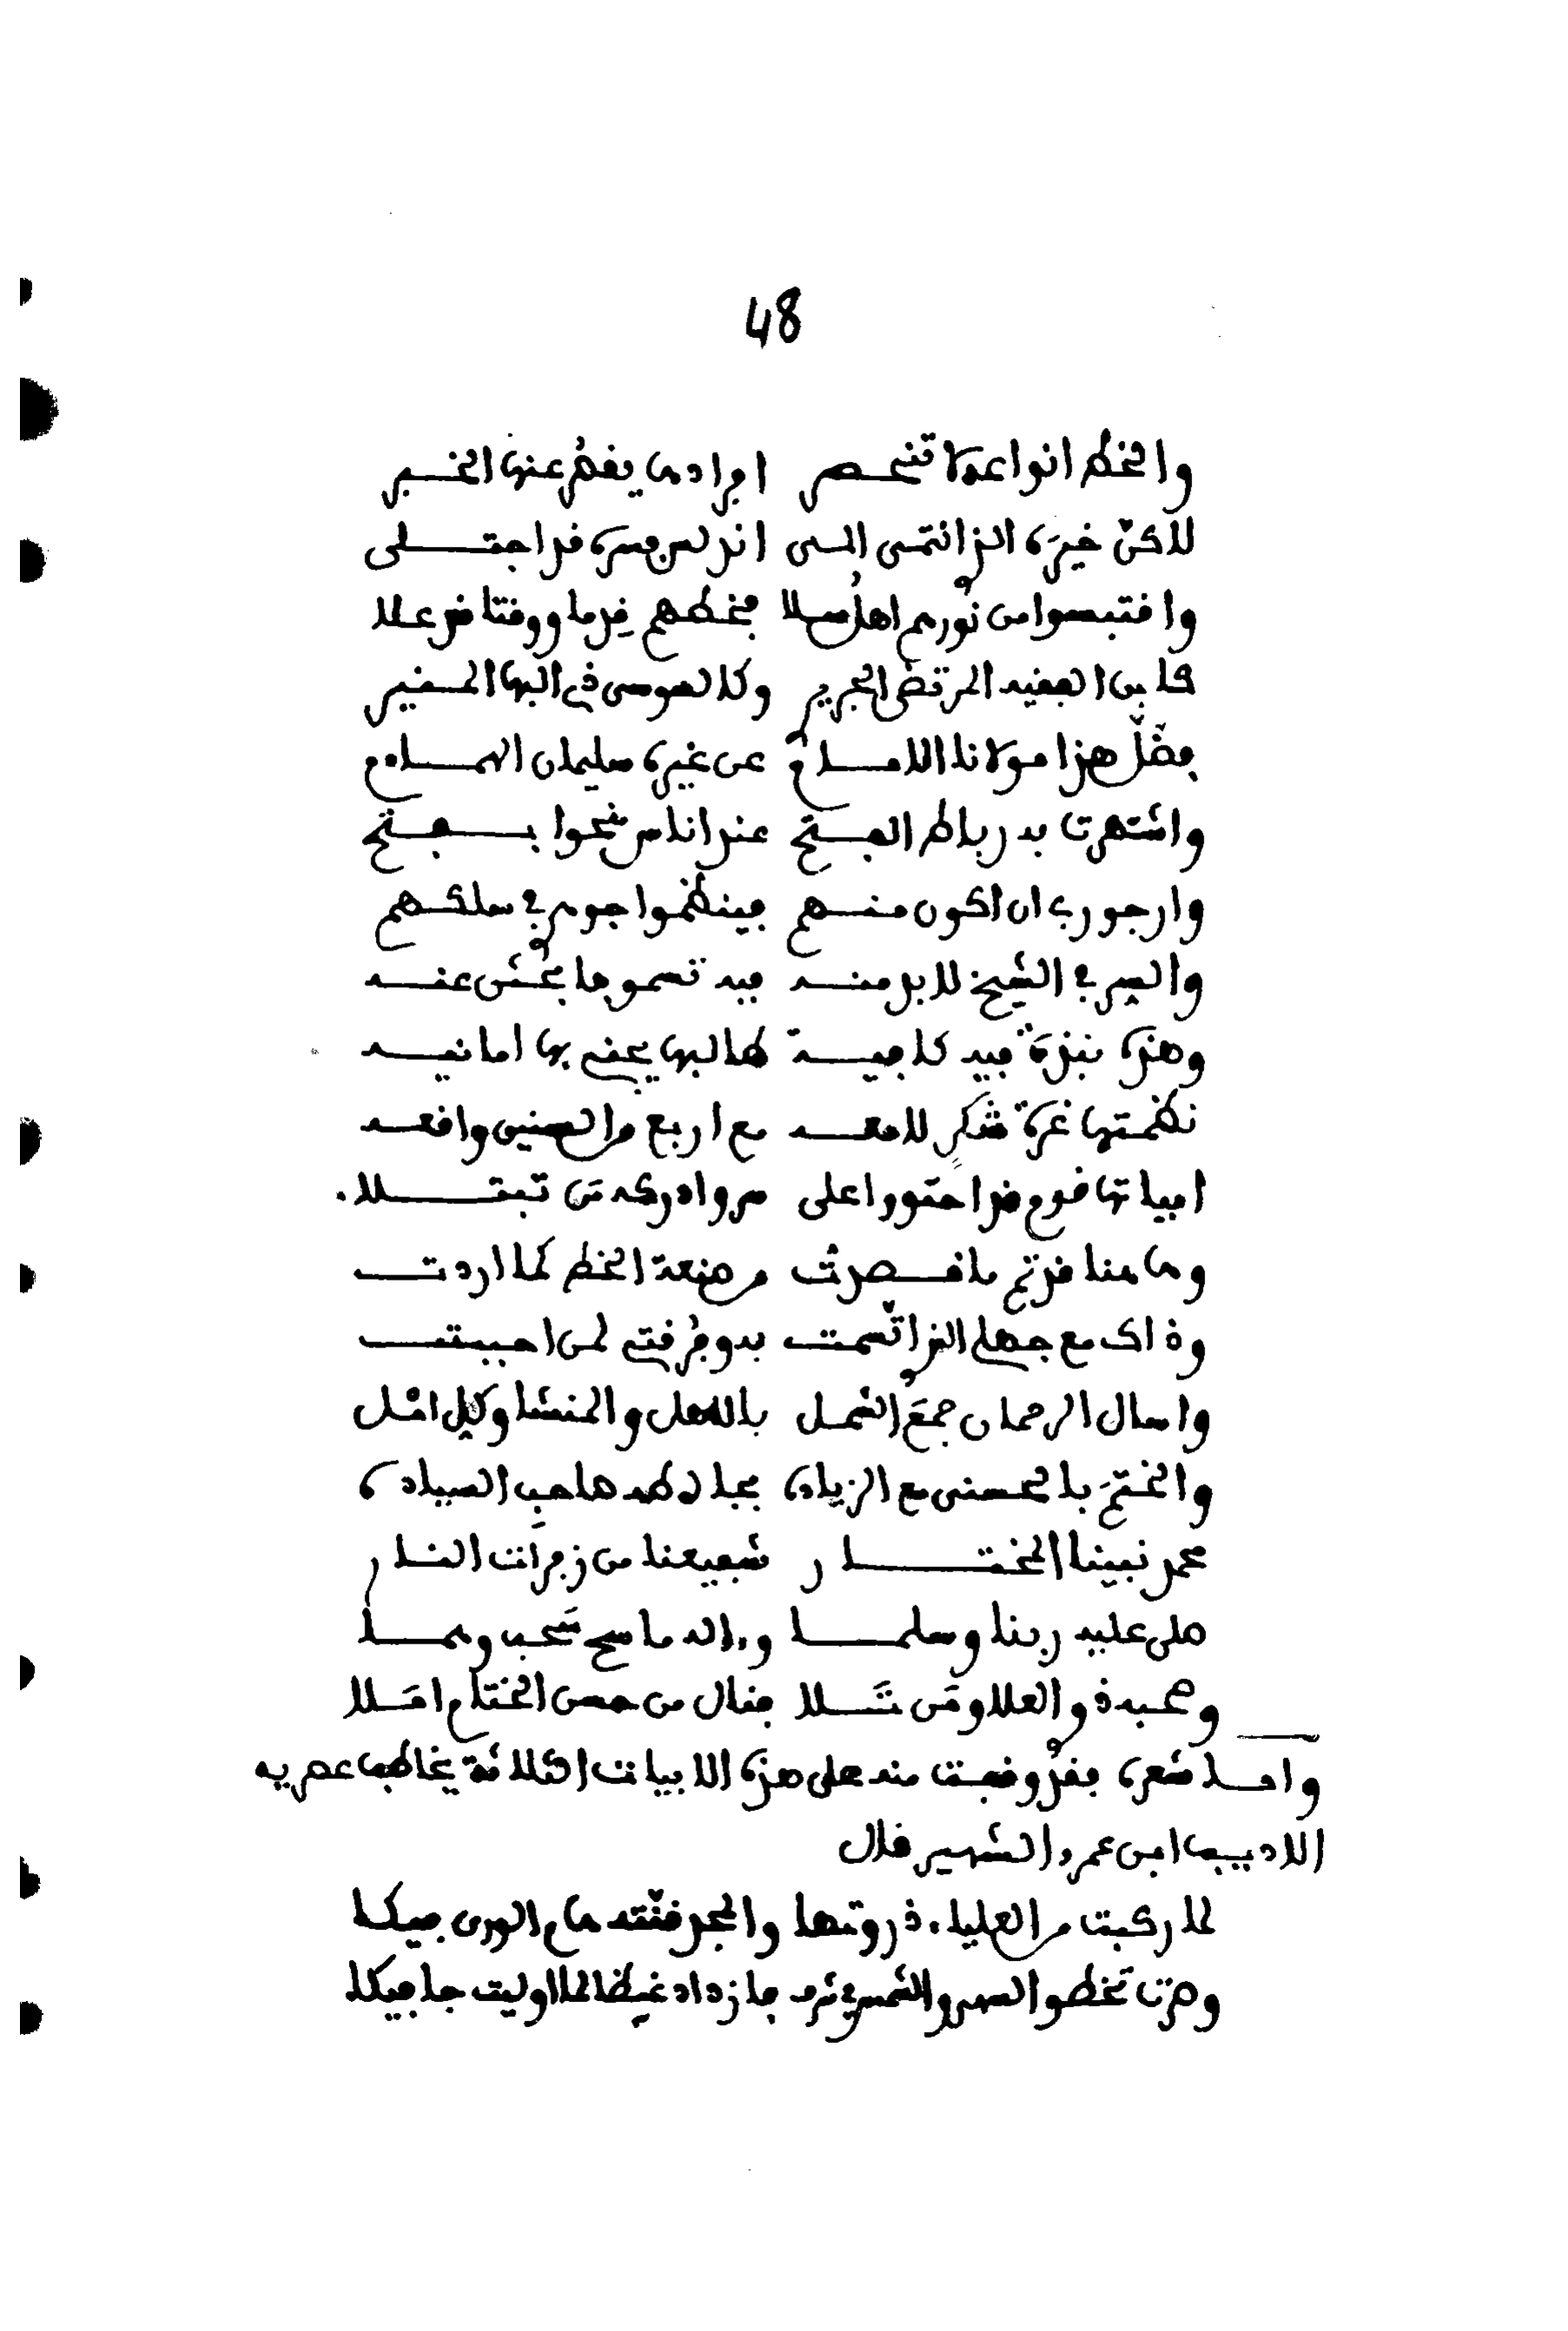 48
والخط انواعه لا تنحصر افرادها يقصر عنها الخبر
لاكن خيره الذ انتمى الى اندلس وسره قد اجتلى
واقتبسوا من نورهم اهل سلا فخطهم قدما ووقتا قد علا
كابن الفقيه المرتضى الجريري وكالعوسى في البها المنير
فضل هذا مولانا الامام عن غيره سليمان الهمام
واشتهرت به رباط الفتح عند اناس منحوا بفتح
وارجو ربي ان اكون منهم فينظموا جوهري في سلكهم
والسر في الشيخ لا بد منه فبه تسمو فابحثن عنه
وهذه نبذة فيه كافية طالبها يحضى بها امانيه
نظمتها غرة شكر لامعه مع اربع من السنين واقعه
ابياتها فوم قد احتووا على سر وادركه من تبتلا
وها هنا قد تم ما قصرت من صنعة الخط كما اردت
وذاك مع جهلي الذ اتسمت به وفر قتي لمن احببت
واسال الرحمان جمع الشمل بالاهل والمنشا وكل امل
والختم بالحسنى مع الزياده بجاه طه صاحب السياده
محمد نبينا المختار شفيعنا من زفرات النار
صلى عليه ربنا وسلما وءاله ما سح سحب وهما
وصحبه ذو العلا ومن تلا فنال من حسن الختام املا
واما شعره فقد وقفت منه على هذه الابيات الثلاثة يخاطب عصريه
الاديب ابن عمرو الشهير قال
لما ركبت من العلياء ذروتها والمجد قنته هام الورى فيكا
وصرت تخطو السهى والشمس في شرف فازداد غيظا لما اوليت جافيكا